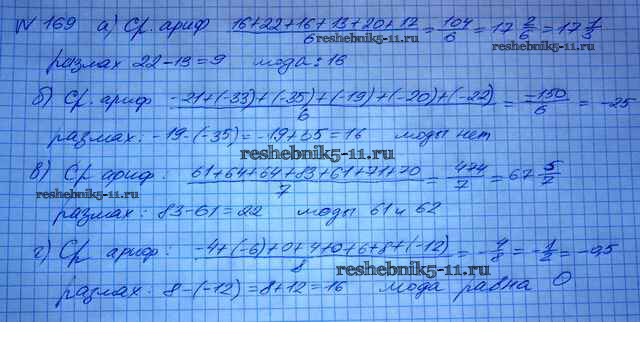 № 169 а) Ср. ариф 16+22+16+13+20+17/6 = 104/6 = 17 2/6 = 17 1/3
reshebnik5-11.ru
размах 22-13=9 мода: 16
reshebnik5-11.ru
б) Ср. ариф -21+(-33)+(-35)+(-19)+(-20)+(-22)/6 = -150/6 = -25
размах: -19-(-35)=-19+35=16 моды нет
reshebnik5-11.ru
в) Ср ариф: 61+64+64+83+61+71+70/7 = 474/7 = 67 5/7
reshebnik5-11.ru
размах: 83-61=22 моды 61 и 62
г) Ср ариф: -4+(-6)+0+4+0+6+8+(-12)/8 = -4/8 = -1/2 = -0,5
reshebnik5-11.ru
размах: 8-(-12)=8+12=16 мода равна 0